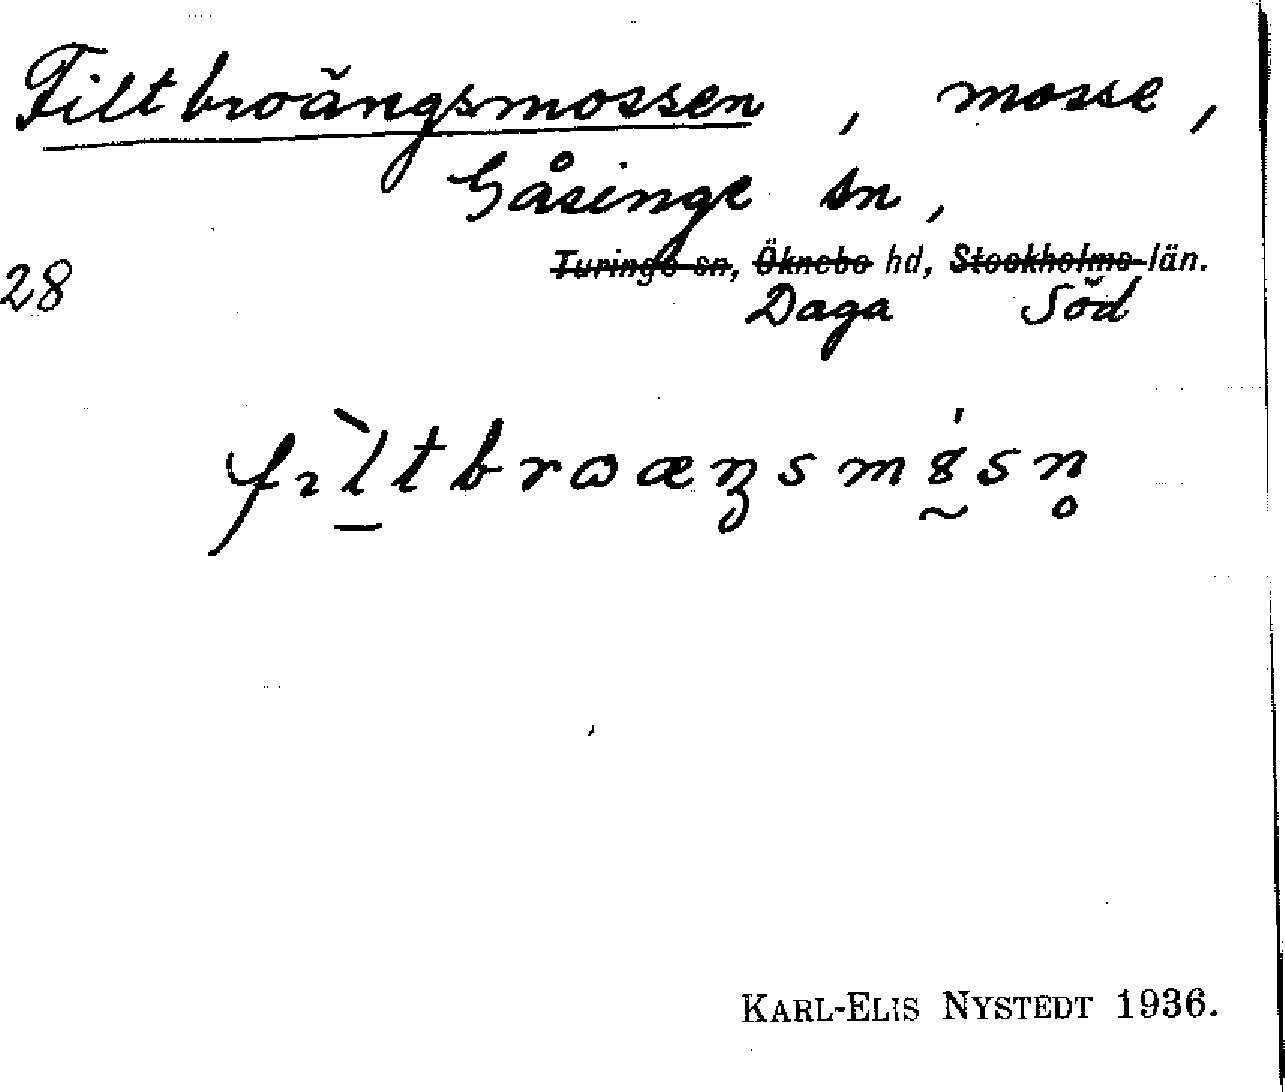 Filtbroängsmossen, mosse,
Gåsinge sn,
28
Turinge sn, Öknebo hd, Stockholms län.
Daga Söd
KARL-ELIS NYSTEDT 1936.